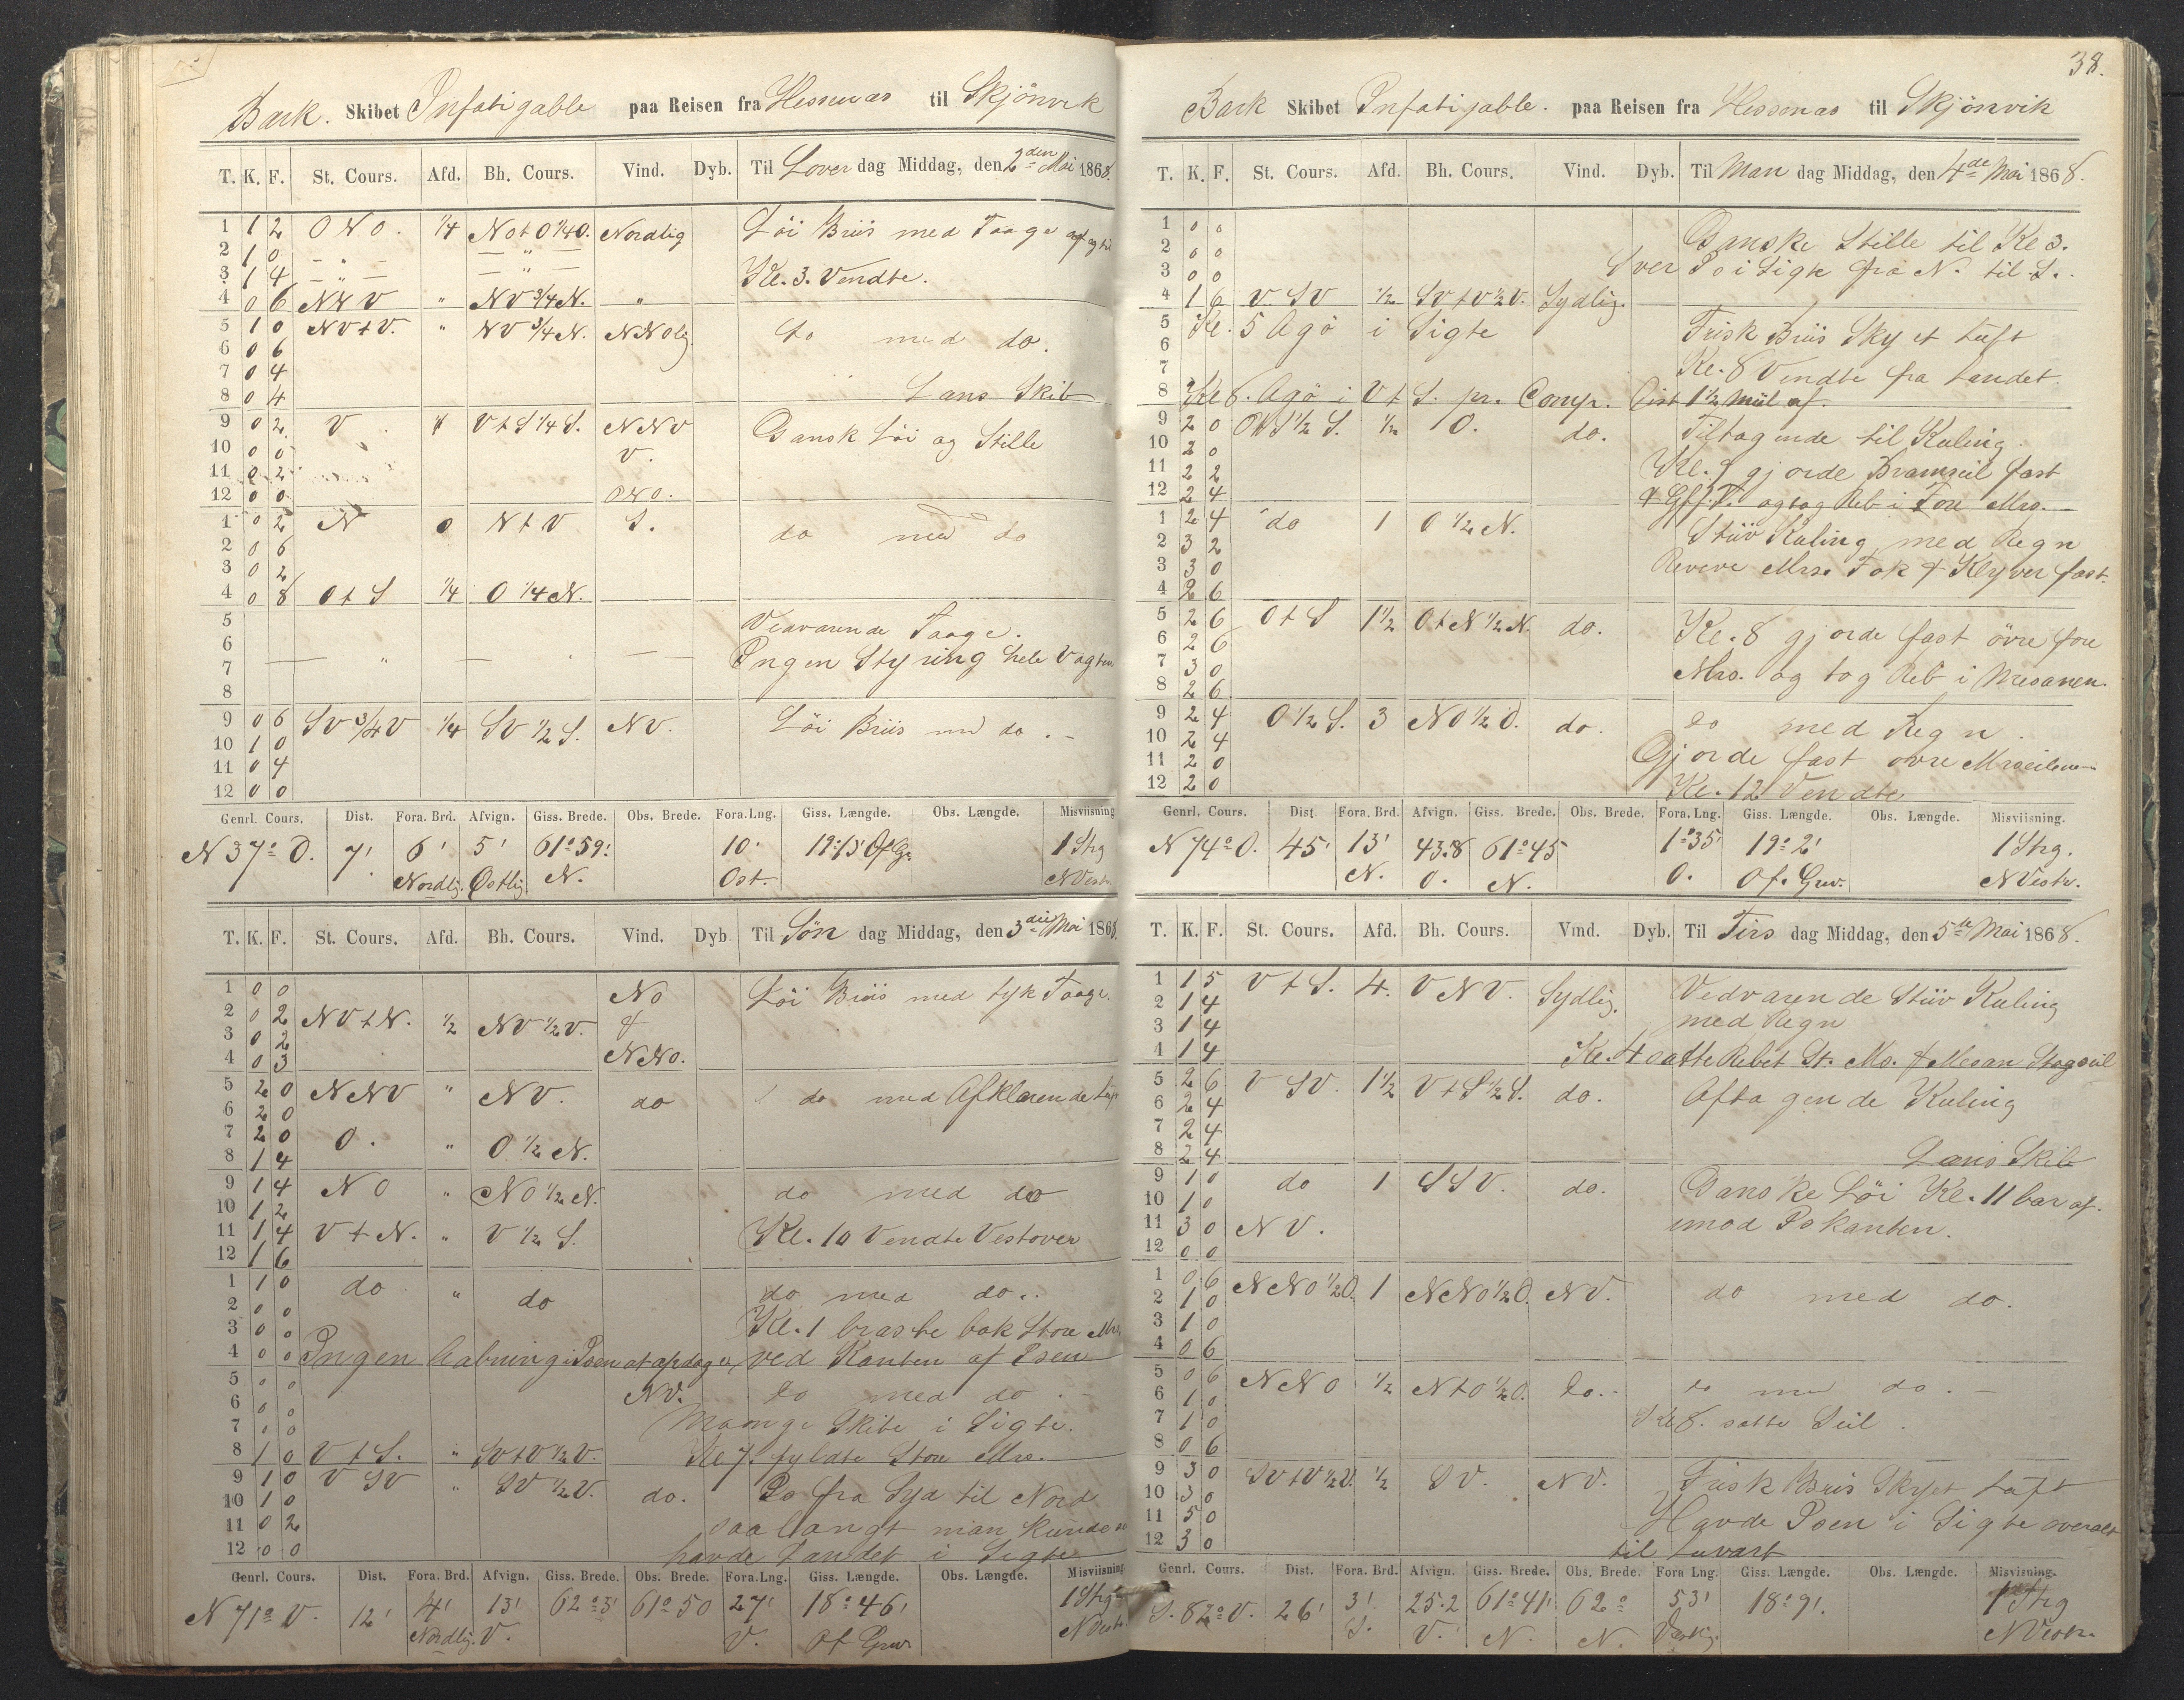 Bark. Skibet Infatigable paa Reisen fra Hessenæs til Skjönvik
T. K. F. St. Cours. Afd. Bh. Cours. Vind. Dyb. Til Löver dag Middag, den 2den Mai 1868.
1 1 2 O N O. 1/4 N O t O 1/4 O. Nordlig Löi Briis med Taage
2 1 0 — „ — — „ —
3 1 4 — „ — — „ — Kl. 3. Vendte.
4 0 6 N N V „ N V 3/4 N. „
5 1 0 N V t V. „ N V 3/4 N. N N Olig do med do.
6 0 6
7 0 4
8 0 4 Lans Skib
9 0 2 V V t S 1/4 S. N N V Dansk Löi og Stille
10 0 0 V.
11 0 2
12 0 0 O N O.
1 0 2 N 0 N t V S. do med do
2 0 6
3 0 2
4 0 8 O t S 1/4 O 1/4 N.
5 Vedvarende Taage.
6 — „ — — Ingen Styring hele Vagten
7
8
9 0 6 S V 3/4 V 1/4 S V 1/2 S. N V. Löi Briis med do. -
10 1 0
11 0 4
12 0 0
Genrl. Cours. Dist. Fora. Brd. Afvign. Giss. Brede. Obs. Brede. Fora. Lng. Giss. Længde. Obs. Længde. Misviisning
N 37° O. 7' 6' 5' 61° 59' 10' 19° 13' Of Gr. 1 Strg
Nordlig. Östlig N. Ost. N Vestr.
T. K. F. St. Cours. Afd. Bh. Cours. Vind. Dyb Til Sön dag Middag, den 3die Mai 1868.
1 0 0 N O Löi Briis med tyk Taage.
2 0 2 N V t N. 1/2 N V 1/2 V. &
3 0 2
4 0 3 N N O.
5 2 0 N N V „ N V. do do med Afklarende
6 2 0
7 2 0 O. „ O 1/2 N.
8 1 4
9 1 4 N O „ N O 1/2 N. do med do
10 1 2
11 1 4 V t N. „ V 1/2 S. Kl. 10 Vendte Vestover
12 1 6
1 1 0 do „ do do med do..
2 0 0 Kl. 1 braste bak Store Mrs
3 0 0
4 0 0 Ingen Aabning i Isen at opdage, ved Kanten af Isen
5 0 0 N V. do med do. -
6 0 0 Mange Skibe i Sigte.
7 0 0
8 1 0 V t S. „ S V t V 1/2 V. Kl 7. fyldte Store Mrs.
9 1 0 V S V „ S V 1/2 V. do. Is fra Syd til Nord
10 1 0
11 0 2 saa langt man kunde se
12 0 0 havde Landet i Sigte
Genrl. Cours. Dist. Fora. Brd. Afvign. Giss. Brede. Obs. Brede. Fora. Lng. Giss. Længde. Obs. Længde. Misviisning
N 71° V. 12' 4' 13' 62° 3' 61° 50 27' 18° 46' 1 Strg
Nordlig. V. V. Of Grw. N Vestr.
38.
Bark Skibet Infatigable. paa Reisen fra Hessenæs til Skjönvik
T. K. F. St. Cours. Afd. Bh. Cours. Vind. Dyb. Til Man dag Middag, den 4de Mai 1868.
1 0 0 Danske Stille til Kl 3.
2 0 0
3 0 0 Svær Is i Sigte fra N. til S.
4 1 6 V. S V 1/2 S V t V 1/2 V. Sydlig.
5 Kl. 5 Agö i Sigte Frisk Briis Skyet Luft
6
7 Kl. 8 Vendte fra Landet.
8 Kl 8. Agö i V t S. pr. Comp. Dist 1 1/2 Miil af.
9 2 0 O t S 1/2 S. 1/2 O. do. Tiltagende til Kuling.
10 2 0
11 2 2 Kl. 9 gjorde Bramseil fast
12 2 4 & Gff. T. og tog Reb i Fore Mrs.
1 2 4 do 1 O 1/2 N. Stiiv Kuling med Regn
2 3 2
3 3 0 Revere Mrs. Fok & Klyver fast.
4 2 6
5 2 6 O t S 1 1/2 O t N 1/2 N. do. Kl. 8 gjorde fast övre fore
6 2 6
7 3 0 Mrs. og tog Reb i Mesanen.
8 2 6
9 2 4 O 1/2 S. 3 N O 1/2 O. do. do med Regn.
10 2 4
11 2 0 Gjorde fast övre Mrseilene
12 2 0 Kl. 12 Vendte
Genrl. Cours. Dist. Fora. Brd. Afvign. Giss. Brede. Obs. Brede. Fora. Lng. Giss. Længde. Obs. Længde. Misviisning.
N 74° O. 45' 13' 43.8 61° 45 1° 35' 19° 2' 1 Strg.
N. O. N. O. Of. Grw. N Vestr.
T. K. F. St. Cours. Afd. Bh. Cours. Vind. Dyb. Til Tirs dag Middag, den 5te Mai 1868.
1 1 5 V t S. 4. V N V. Sydlig. Vedvarende Stiiv Kuling
2 1 4
3 1 4 med Regn
4 1 4 Kl. 4 satte Rebet St. Ms. & Mesan Stagseil
5 2 6 V S V. 1 1/2 V t S 1/2 S. do. Aftagende Kuling
6 2 4
7 2 4
8 2 4 Lans Skib
9 1 0 do 1 S S V. do. Danske Löi Kl. 11 bar af.
10 1 0
11 3 0 N V. imod Iskanten.
12 0 0
1 0 6 N N O 1/2 O. 1 N N O 1/2 O. N V. do med do.
2 1 0
3 1 0
4 0 6
5 0 6 N N O 1/2 N t O 1/2 O. do. - do med do. -
6 1 0
7 1 0 Kl 8. satte Seil.
8 0 6
9 3 0 S V t V 1/2 V. 1/2 S V. N V. Frisk Briis Skyet Luft
10 3 0
11 5 0 Havde Isen i Sigte overalt
12 3 0 til Luvart
Genrl. Cours. Dist. Fora. Brd. Afvign. Giss. Brede. Obs. Brede. Fora Lng. Giss. Længde. Obs. Længde. Misviisning.
S. 82° V. 26' 3' 25.2 61° 41' 62° 53' 18° 9'. 1 Strg
S. V. N. N. Vestlig. N Vestr.